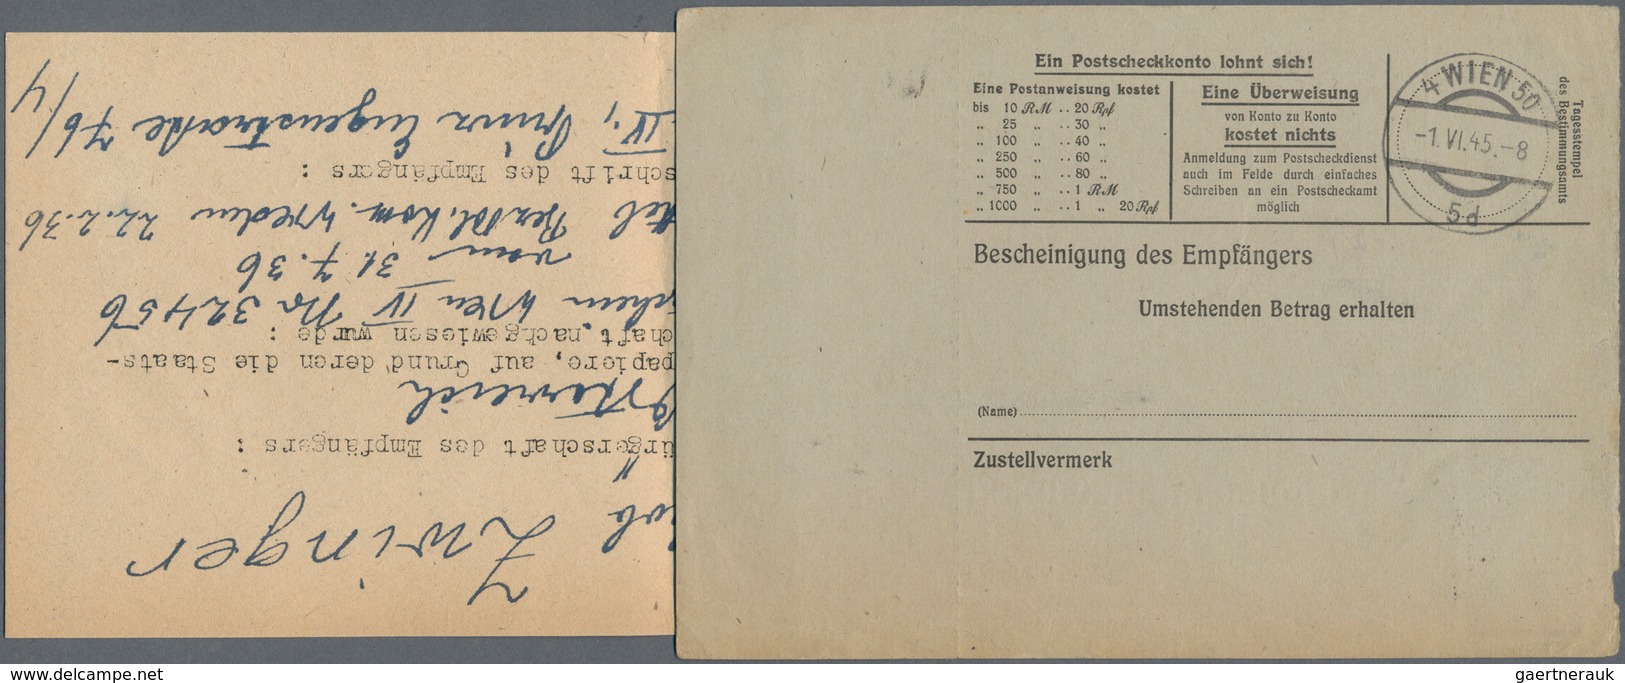 Zwinger
ürgerschaft des Empfängers :
Österreich
papiere, auf Grund deren die Staats-
chaft nachgewiesen wurde :
schein Wien IV No 32456
vom 31.7.36
Bez.Pol.Kom. Wieden 22.2.36
schrift des Empfängers :
IV., Prinz Eugenstraße 76/
/4
Ein Postscheckkonto lohnt sich!
Eine Postanweisung kostet
bis 10 RM .. 20 Rpf
„ 25 „ .. 30 „
„ 100 „ .. 40 „
„ 250 „ .. 60 „
„ 500 „ .. 80 „
„ 750 „ .. 1 RM
„ 1000 „ .. 1 „ 20 Rpf
Eine Überweisung
von Konto zu Konto
kostet nichts
Anmeldung zum Postscheckdienst
auch im Felde durch einfaches
Schreiben an ein Postscheckamt
möglich
4 WIEN 50
-1.VI.45.-8
5d
Tagesstempel
des Bestimmungsamts
Bescheinigung des Empfängers
Umstehenden Betrag erhalten
(Name)
Zustellvermerk
www.delcampe.net
gaertnerauk